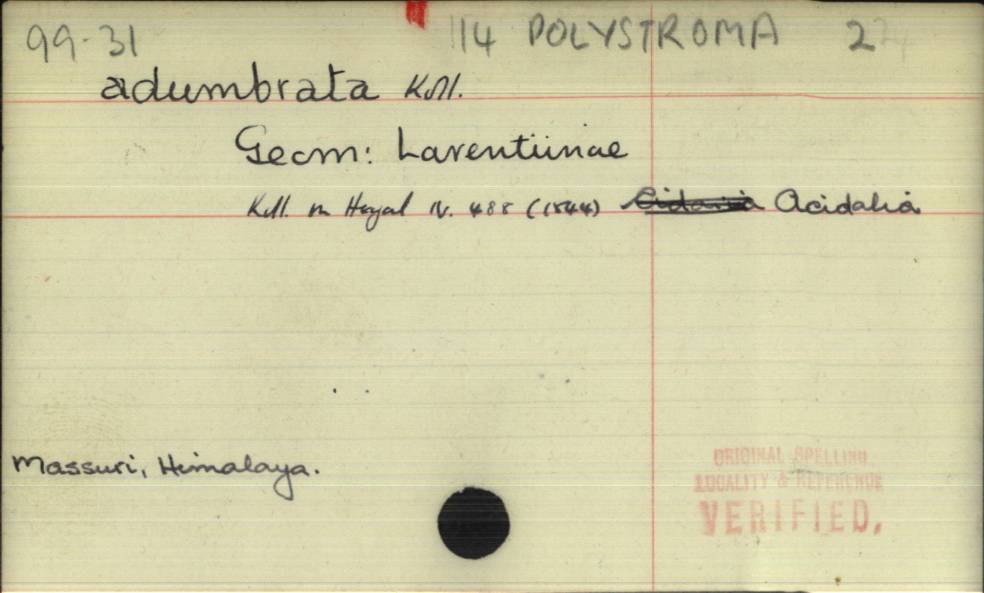 99-31 114 POLYSTROMA 2
adumbrata Koll.
Geom: Larentiinae
Koll. in Hugel IV. 488 (1844) Cidaria Acidalia
Massuri, Himalaya.
ORIGINAL SPELLING
LOCALITY & REFERENCE
VERIFIED.